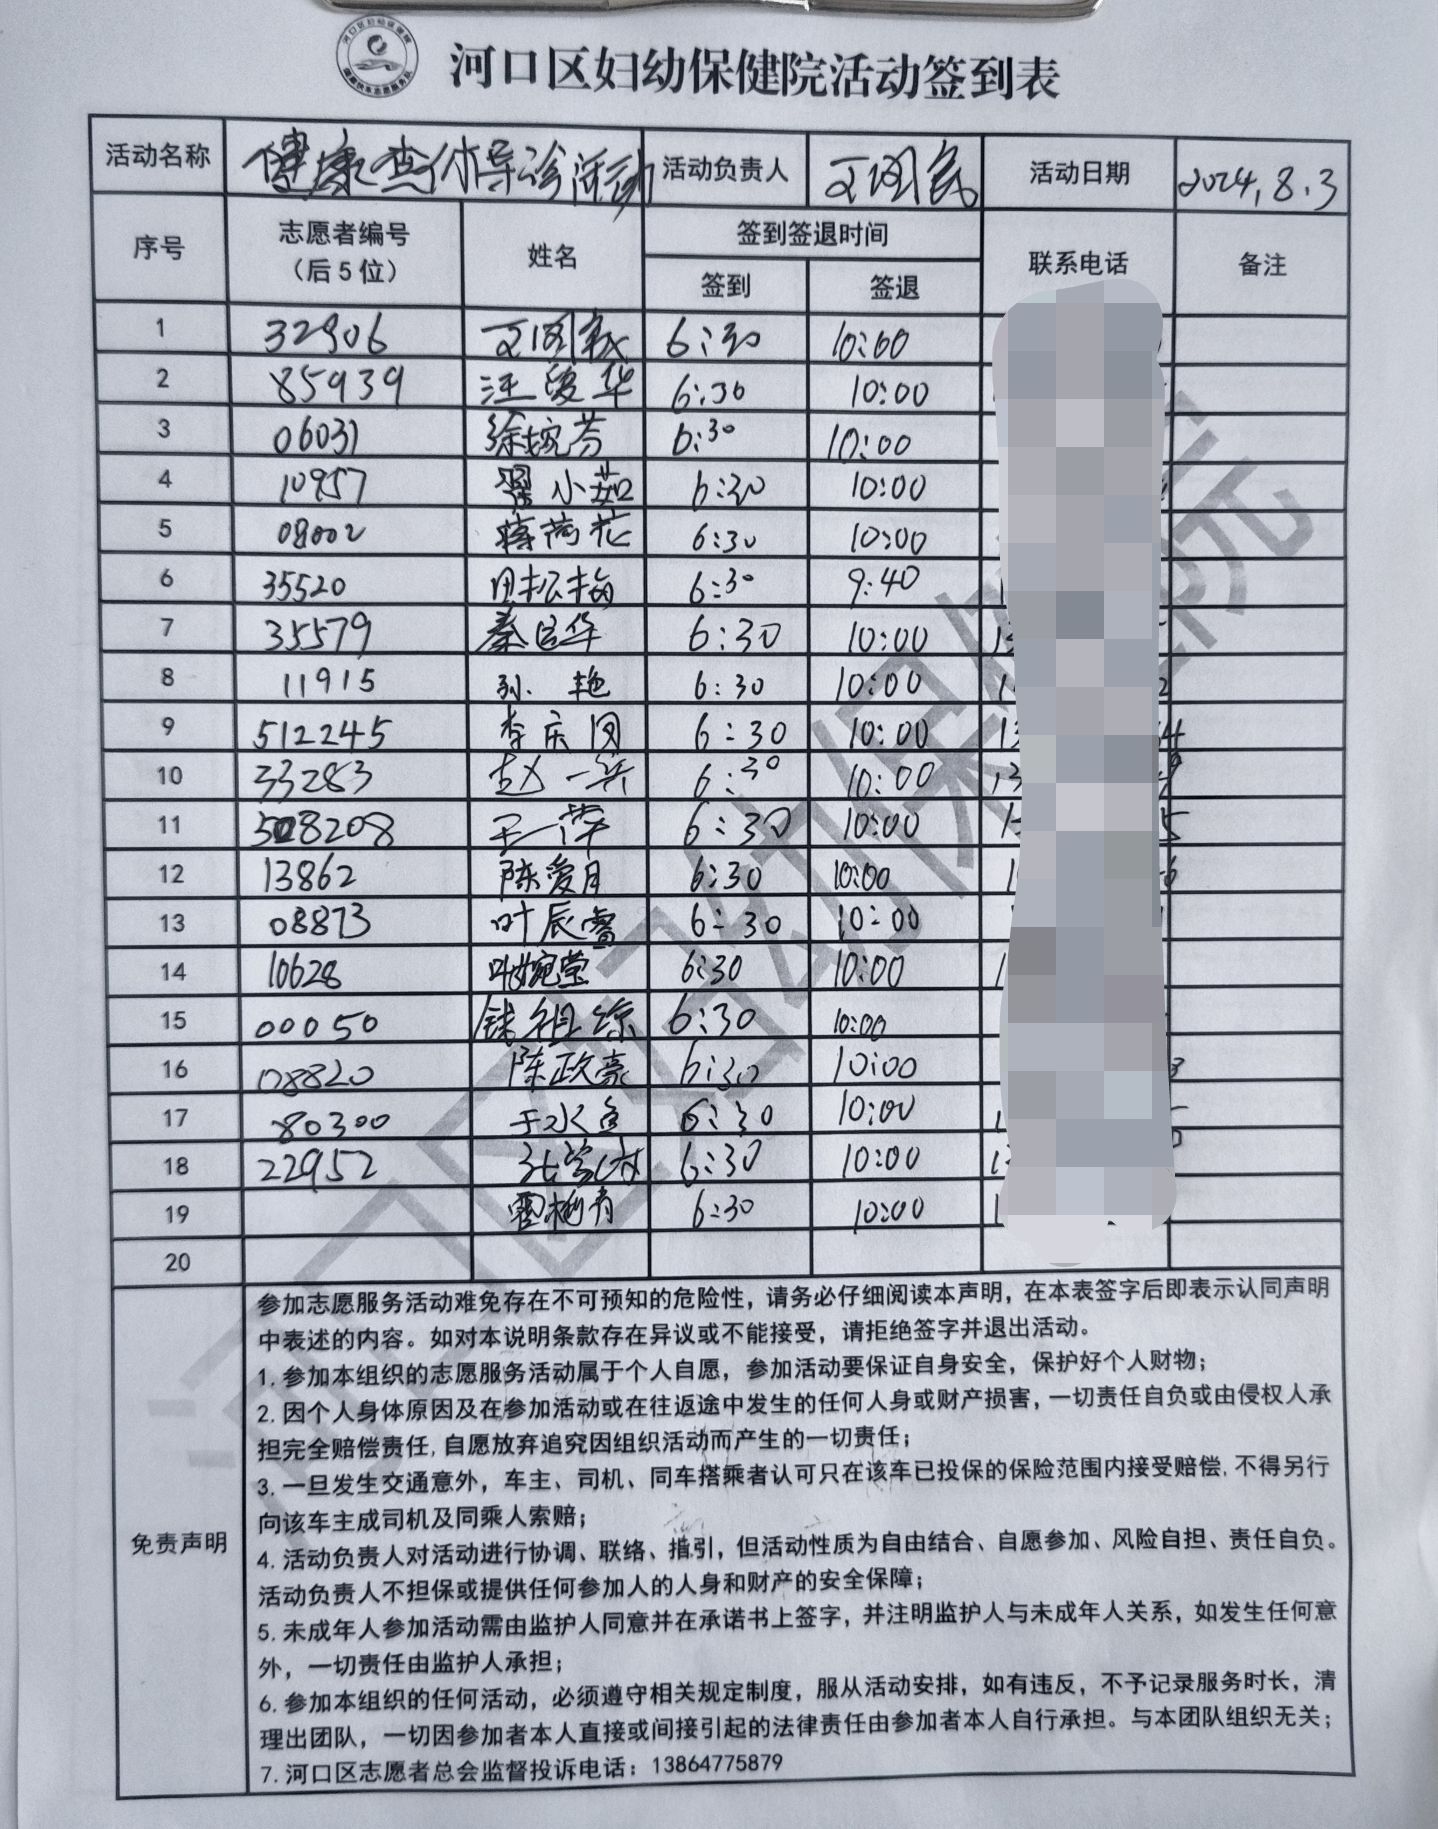 河口区妇幼保健院活动签到表
活动名称 健康查体导诊活动 活动负责人 活动日期 2024.8.3
序号 志愿者编号（后5位） 姓名 签到签退时间 联系电话 备注
签到 签退
1 32906 6:30 10:00
2 85939 汪爱华 6:30 10:00
3 06031 徐婉芬 6:30 10:00
4 10957 翟小茹 6:30 10:00
5 08002 蒋荷花 6:30 10:00
6 35520 田松梅 6:30 9:40
7 35579 秦 华 6:30 10:00
8 11915 孙艳 6:30 10:00
9 512245 李庆 6:30 10:00
10 33283 赵一兵 6:30 10:00
11 508208 王一萍 6:30 10:00
12 13862 陈爱月 6:30 10:00
13 08873 叶辰睿 6:30 10:00
14 10628 叶婉莹 6:30 10:00
15 00050 钱祖综 6:30 10:00
16 08820 陈政豪 6:30 10:00
17 80300 于水 6:30 10:00
18 22952 张 6:30 10:00
19 霍梅青 6:30 10:00
20
免责声明
参加志愿服务活动难免存在不可预知的危险性，请务必仔细阅读本声明，在本表签字后即表示认同声明
中表述的内容。如对本说明条款存在异议或不能接受，请拒绝签字并退出活动。
1.参加本组织的志愿服务活动属于个人自愿，参加活动要保证自身安全，保护好个人财物；
2.因个人身体原因及在参加活动或在往返途中发生的任何人身或财产损害，一切责任自负或由侵权人承
担完全赔偿责任,自愿放弃追究因组织活动而产生的一切责任；
3.一旦发生交通意外，车主、司机、同车搭乘者认可只在该车已投保的保险范围内接受赔偿,不得另行
向该车主成司机及同乘人索赔；
4.活动负责人对活动进行协调、联络、措引，但活动性质为自由结合、自愿参加、风险自担、责任自负。
活动负责人不担保或提供任何参加人的人身和财产的安全保障；
5.未成年人参加活动需由监护人同意并在承诺书上签字，并注明监护人与未成年人关系，如发生任何意
外，一切责任由监护人承担；
6.参加本组织的任何活动，必须遵守相关规定制度，服从活动安排，如有违反，不予记录服务时长，清
理出团队，一切因参加者本人直接或间接引起的法律责任由参加者本人自行承担。与本团队组织无关；
7.河口区志愿者总会监督投诉电话：13864775879
河口区妇幼保健院